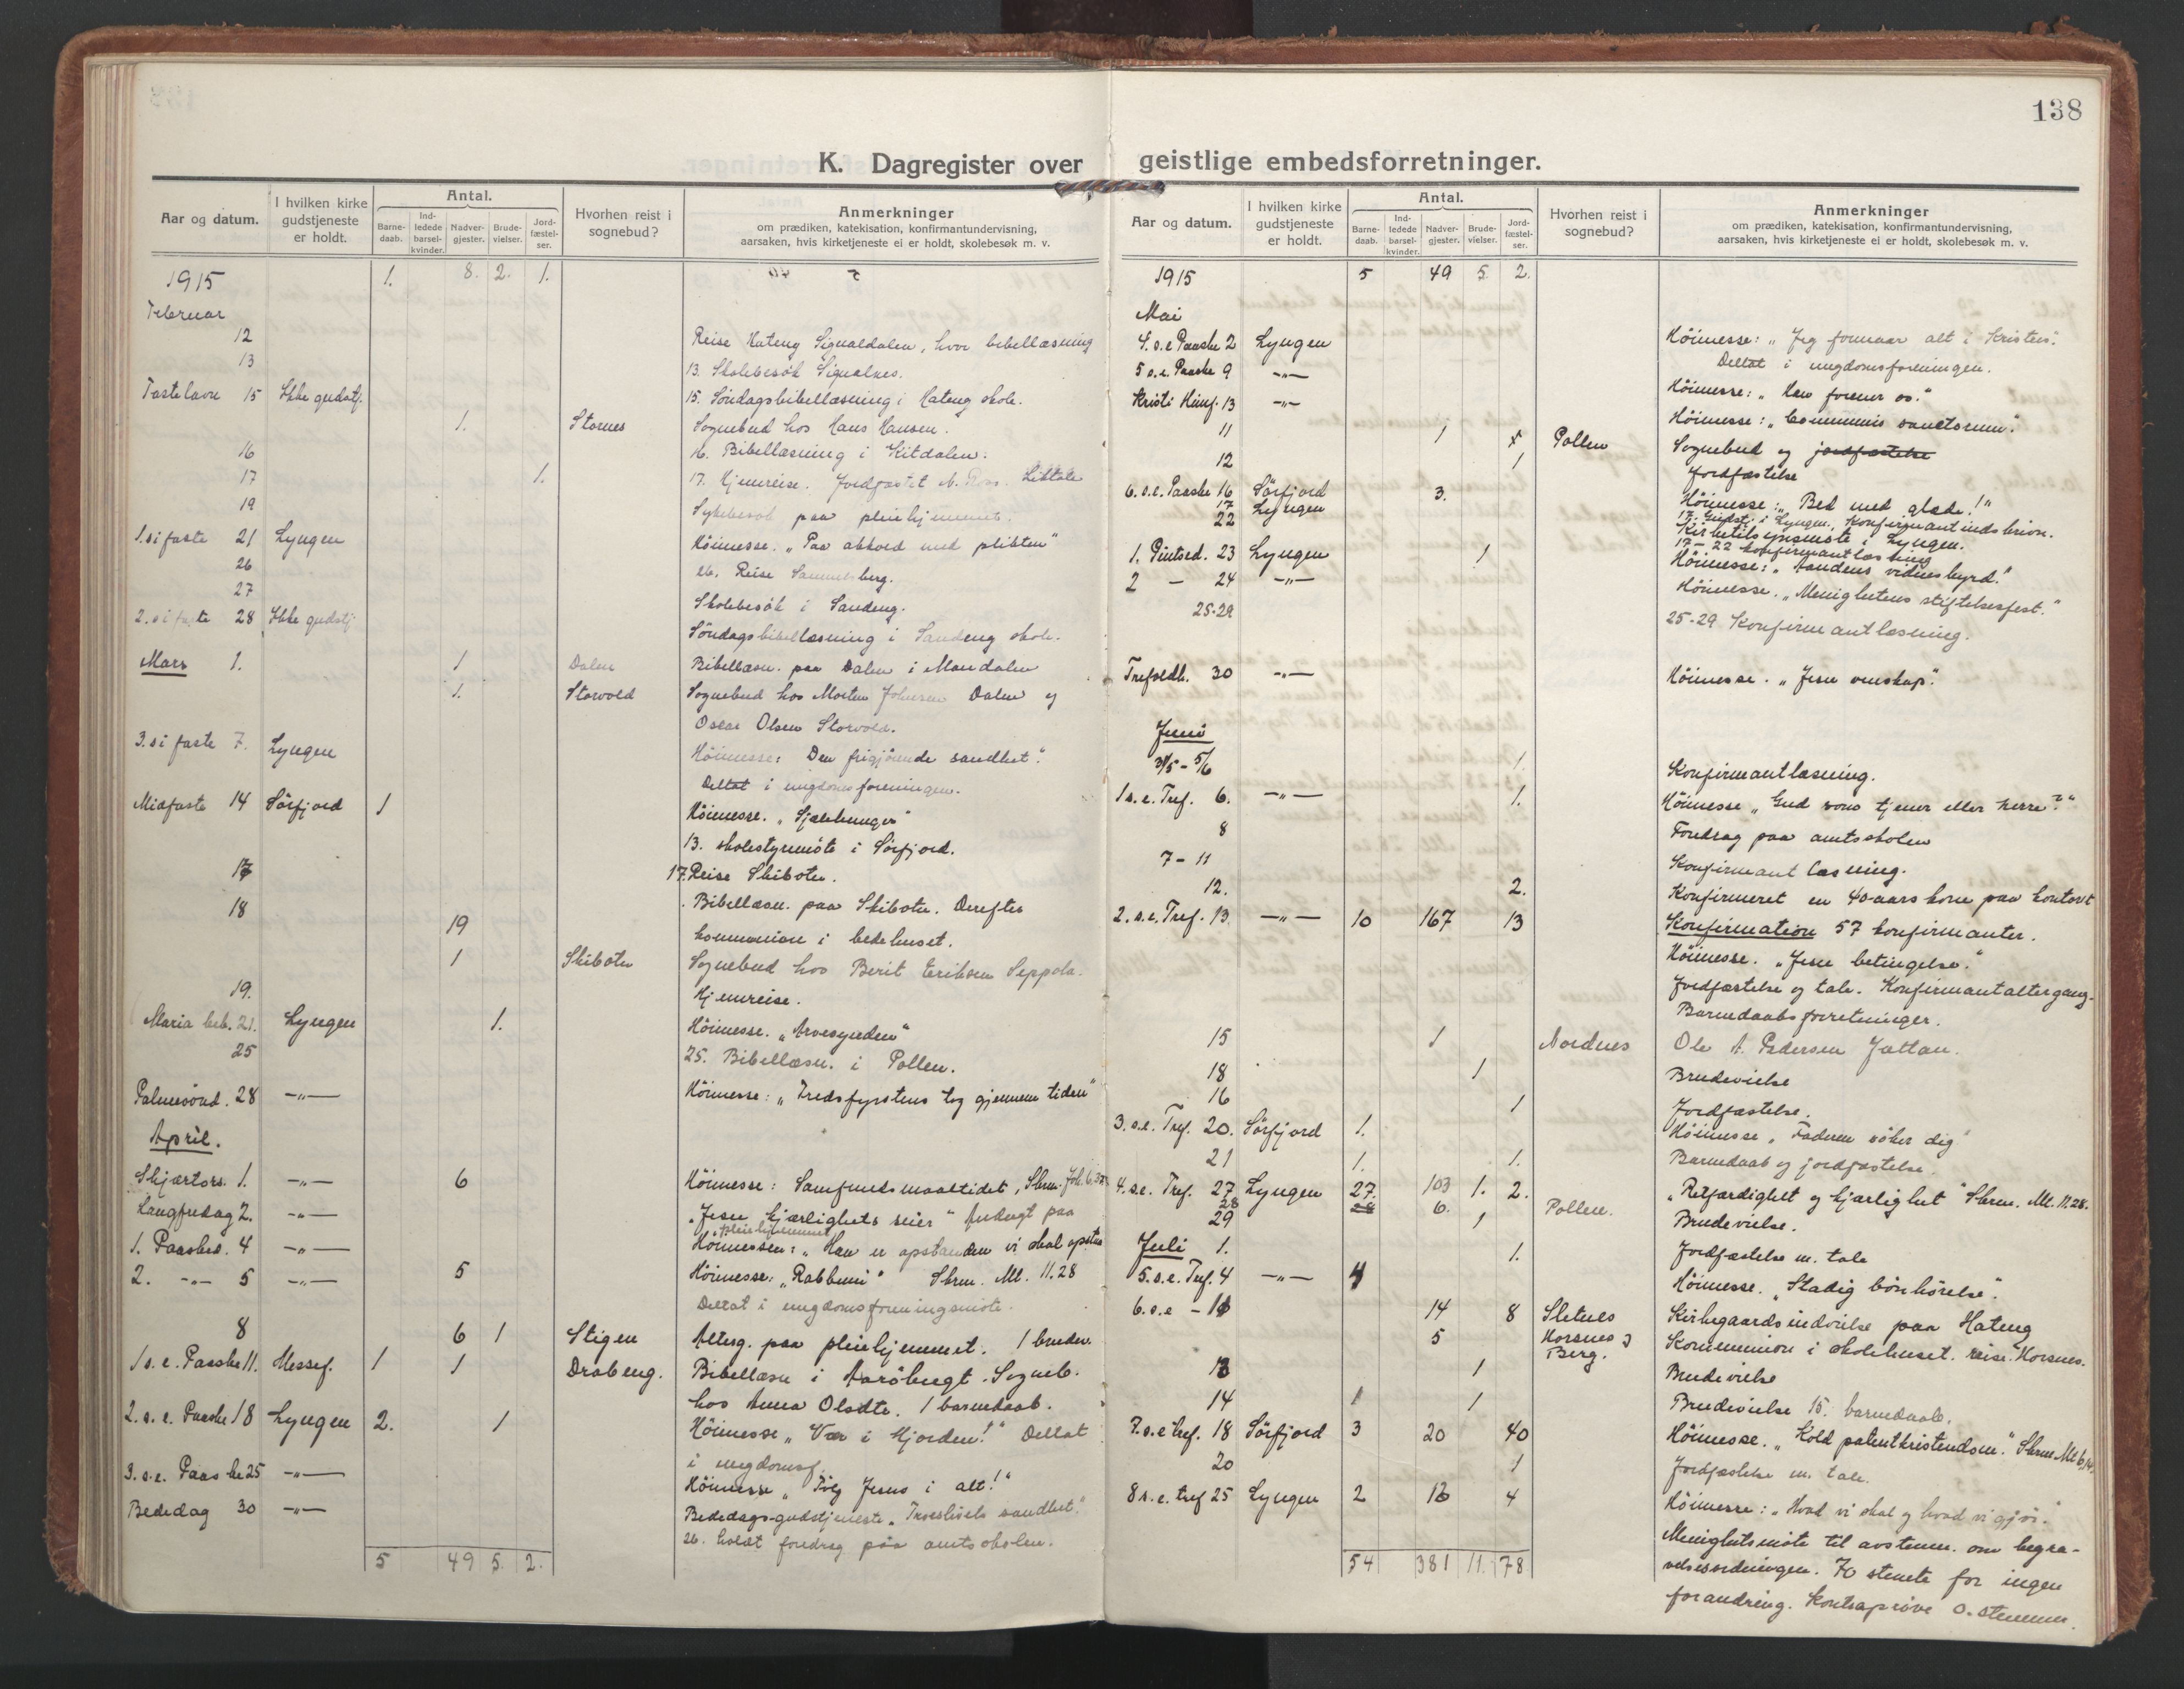 138
K. Dagregister over geistlige embedsforretninger.
Aar og datum. I hvilken kirke gudstjeneste er holdt. Antal. Barne-daab. Ind-ledede barsel-kvinder. Nadver-gjester. Brude-vielser. Jord-fæstel-ser. Hvorhen reist i sognebud? Anmerkninger om prædiken, katekisation, konfirmantundervisning, aarsaken, hvis kirketjeneste ei er holdt, skolebesøk m. v.
1915 1. 8. 2. 1.
Februar
12 Reise Hateng Signaldalen, hvor bibellæsning
13 13. Skolebesök Signalnes.
Fastelavn 15 Ikke gudstj. 15. Söndagsbibellæsning i Hateng skole.
1. Stornes Sognebud hos Hans Hansen.
16 16. Bibellæsning i Kitdalen.
17 1. 17. Hjemreise. Jordfæstet N. Ross. Littale
19 Sykebesök paa pleiehjemmet.
1. s i faste 21 Lyngen Höimesse. "Paa akkord med plikten"
26 26. Reise Samuelsberg.
27 Skolebesök i Sandeng.
2. s i faste 28 Ikke gudstj. Söndagsbibellæsning i Sandeng skole.
Mars 1. 1 Dalen Bibellæsn. paa Dalen i Mandalen
1. Storvold Sognebud hos Morten Johnsen Dalen og
Oscar Olsen Storvold.
3. s i faste 7. Lyngen Höimesse: Den frigjörende sandhet".
Deltat i ungdomsforeningen.
Midfaste 14 Sörfjord 1 Höimesse. "Sjælehunger"
13. skolestyremöte i Sörfjord.
17 17. Reise Skibotn.
18 Bibellæsn. paa Skibotn. Derefter
19 kommunion i bedehuset.
1 Skibotn Sognebud hos Berit Eriksen Seppola.
19. Hjemreise.
Maria beb. 21. Lyngen 1. Höimesse. "Arvesynden"
25 25. Bibellæsn. i Pollen.
Palmesönd. 28 -"- Höimesse: "Fredsfyrstens tog gjennem tiden"
April.
Skjærtors. 1. -"- 6 Höimesse: Samfundsmaaltidet, Skrm. Joh. 6,37
Langfredag 2. -"- "Jesu kjærlighets seier" Andagt paa
pleiehjemmet
1. Paasked. 4 -"- Höimessen: "Han er opstanden vi skal opstaa
2. -"- 5 -"- 5 Höimesse: "Rabbuni" Skrm. Mt. 11.28
Deltat i ungdomsforeningsmöte.
8 6 1 Stigen Alterg. paa pleiehjemmet. 1 brudev.
1 s. e. Paaske 11. Messef. 1 1 Drabeng. Bibellæsn i Aaröbugt. Sogneb.
hos Anna Olsdtr. 1 barnedaab.
2. s. e. Paaske 18 Lyngen 2. 1 Höimesse "Vær i Hjorden!" Deltat
i ungdomsf.
3. s. e. Paaske 25 -"- Höimesse "Fölg Jesus i alt!"
Bededag 30 -"- Bededags-gudstjeneste "Troeslivets sandhet".
26. holdt foredrag paa amtsskolen.
5 49 5. 2.
Aar og datum. I hvilken kirke gudstjeneste er holdt. Antal. Barne-daab. Ind-ledede barsel-kvinder. Nadver-gjester. Brude-vielser. Jord-fæstel-ser. Hvorhen reist i sognebud? Anmerkninger om prædiken, katekisation, konfirmantundervisning, aarsaken, hvis kirketjeneste ei er holdt, skolebesøk m. v.
1915 5 49 5. 2.
Mai
4. s. e Paaske 2 Lyngen Höimesse: "Jeg formaar alt i Kristus".
Deltat i ungdomsforeningen.
5 s. e. Paaske 9 -"- Höimesse: "Han forener os."
Kristi Himf. 13 -"- Höimesse: "Communio sanctorum."
11 1 Pollen Sognebud og jordfæstelse
12 1 Jordfæstelse
6. s. e. Paaske 16 Sörfjord 3. Höimesse: "Bed med glæde!"
17 Lyngen 17. Gudstj. i Lyngen, Konfirmantindskrivn.
22 Kirketilsynsmöte i Lyngen.
17-22 konfirmantlæsning
1. Pintsed. 23 Lyngen 1 Höimesse: "Aandens vidnesbyrd."
2 - 24 -"- Höimesse. "Menighetens stiftelsesfest."
25-29 25-29 Konfirmantlæsning.
Trefoldh. 30 -"- Höimesse. "Jesu venskap".
Juni
31/5 - 5/6 1. Konfirmantlæsning.
1 s. e. Tref. 6. -"- 1. Höimesse "Gud vors tjener eller herre?"
8 Foredrag paa amtsskolen
7-11 Konfirmantlæsning.
12. 2. Konfirmeret en 40-aars kone paa kontoret
2. s. e. Tref. 13. -"- 10 167 13 Konfirmation 57 konfirmanter.
Höimesse. "Jesu betingelse."
Jordfæstelse og tale. Konfirmantaltergang.
Barnedaabsforretninger.
15 1 Nordnes Ole A. Pedersen Jattan.
18 1 Brudevielse
16 1 Jordfæstelse.
3. s. e. Tref. 20. Sörfjord 1. Höimesse "Faderen söker dig"
21 1. 1. Barnedaab og jordfæstelse.
4. s. e. Tref. 27 Lyngen 27. 103 1. 2. "Retfærdighet og kjærlighet" Skrm. Mt. 11.28.
28 28 6. Pollen.
29 1 Brudevielse.
Juli 1. 1. Jordfæstelse m. tale
5. s. e. Tref. 4 -"- 4 Höimesse. "Stadig bönhörelse".
6. s. e - 11 14 8 Sletnes Kirkegaardsindvielse paa Hateng
5 Horsnes og Berg. Kommunion i skolehuset. reise Horsnes.
13 1 Brudevielse
14 1 1 Brudevielse 15. barnedaab.
7. s. e tref. 18 Sörfjord 3 20 40 Höimesse. "Kold patentkristendom." Skrm Mt 6,14.
20 1 Jordfæstelse m. tale.
8 s. e. tref 25 Lyngen 2 13 4 Höimesse: "Hvad vi skal og hvad vi gjör."
Menighetsmöte til avstemn. om begra-
velsesordningen. 70 stemte for ingen
forandring. Kontraprove 0. stemmer.
54 381 11. 78